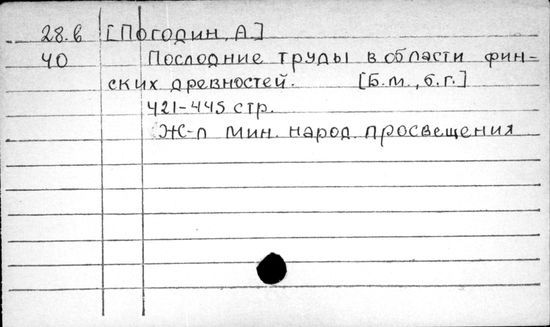 28.б [Погодин, А]
40 Послодние труды в области фин-
ских древностей. [Б.м., б.г.]
421-445 стр.
Ж-л Мин. народ. просвещения